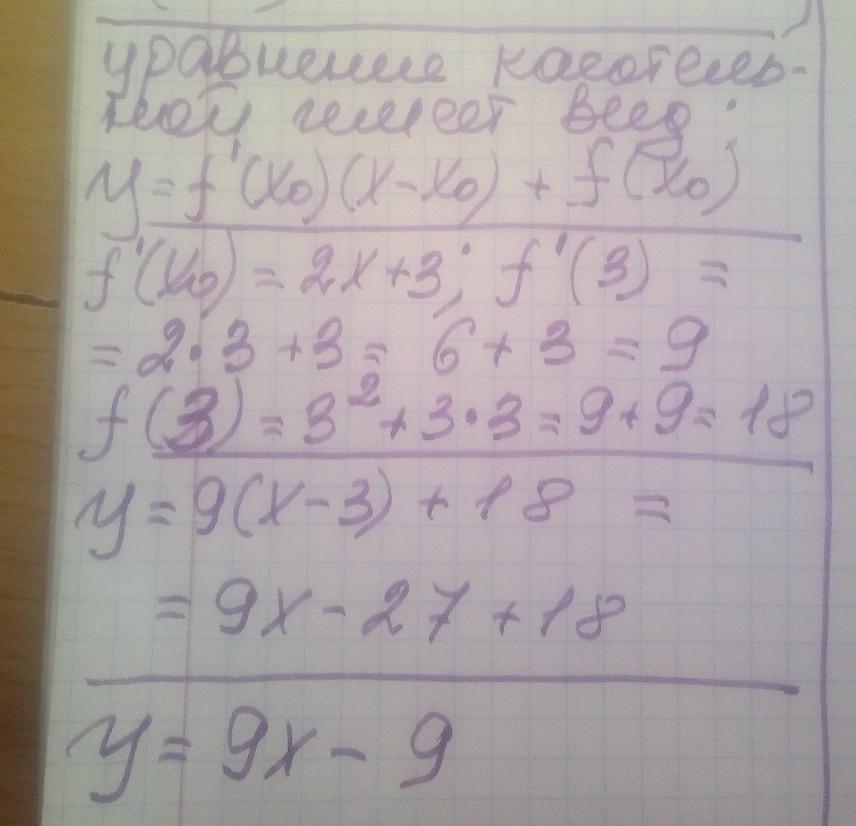 уравнение касатель-
ной имеет вид:
y = f'(x₀)(x - x₀) + f(x₀)
f'(x₀) = 2x + 3; f'(3) =
= 2 · 3 + 3 = 6 + 3 = 9
f(3) = 3² + 3 · 3 = 9 + 9 = 18
y = 9(x - 3) + 18 =
= 9x - 27 + 18
y = 9x - 9